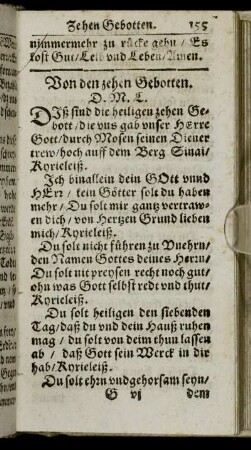 Zehen Gebotten. 155
nimmermehr zu rücke gehn / Es
kost Gut / Leib vnd Leben / Amen.
Von den zehen Gebotten.
D. M. L.
DIß sind die heiligen zehen Ge-
bott / die vns gab vnser HErre
Gott / durch Mosen seinen Diener
trew / hoch auff dem Berg Sinai /
Kyrieleiß.
Ich bin allein dein GOtt vnnd
HErr / kein Götter solt du haben
mehr / Du solt mir gantz vertraw-
en dich / von Hertzen Grund lieben
mich / Kyrieleiß.
Du solt nicht führen zu Vnehrn /
den Namen Gottes deines Herrn /
Du solt nit preysen recht noch gut /
ohn was Gott selbst redt vnd thut /
Kyrieleiß.
Du solt heiligen den siebenden
Tag / daß du vnd dein Hauß ruhen
mag / du solt von deim thun lassen
ab / daß Gott sein Werck in dir
hab / Kyrieleiß.
Du solt ehrn vnd gehorsam seyn /
G vj dem